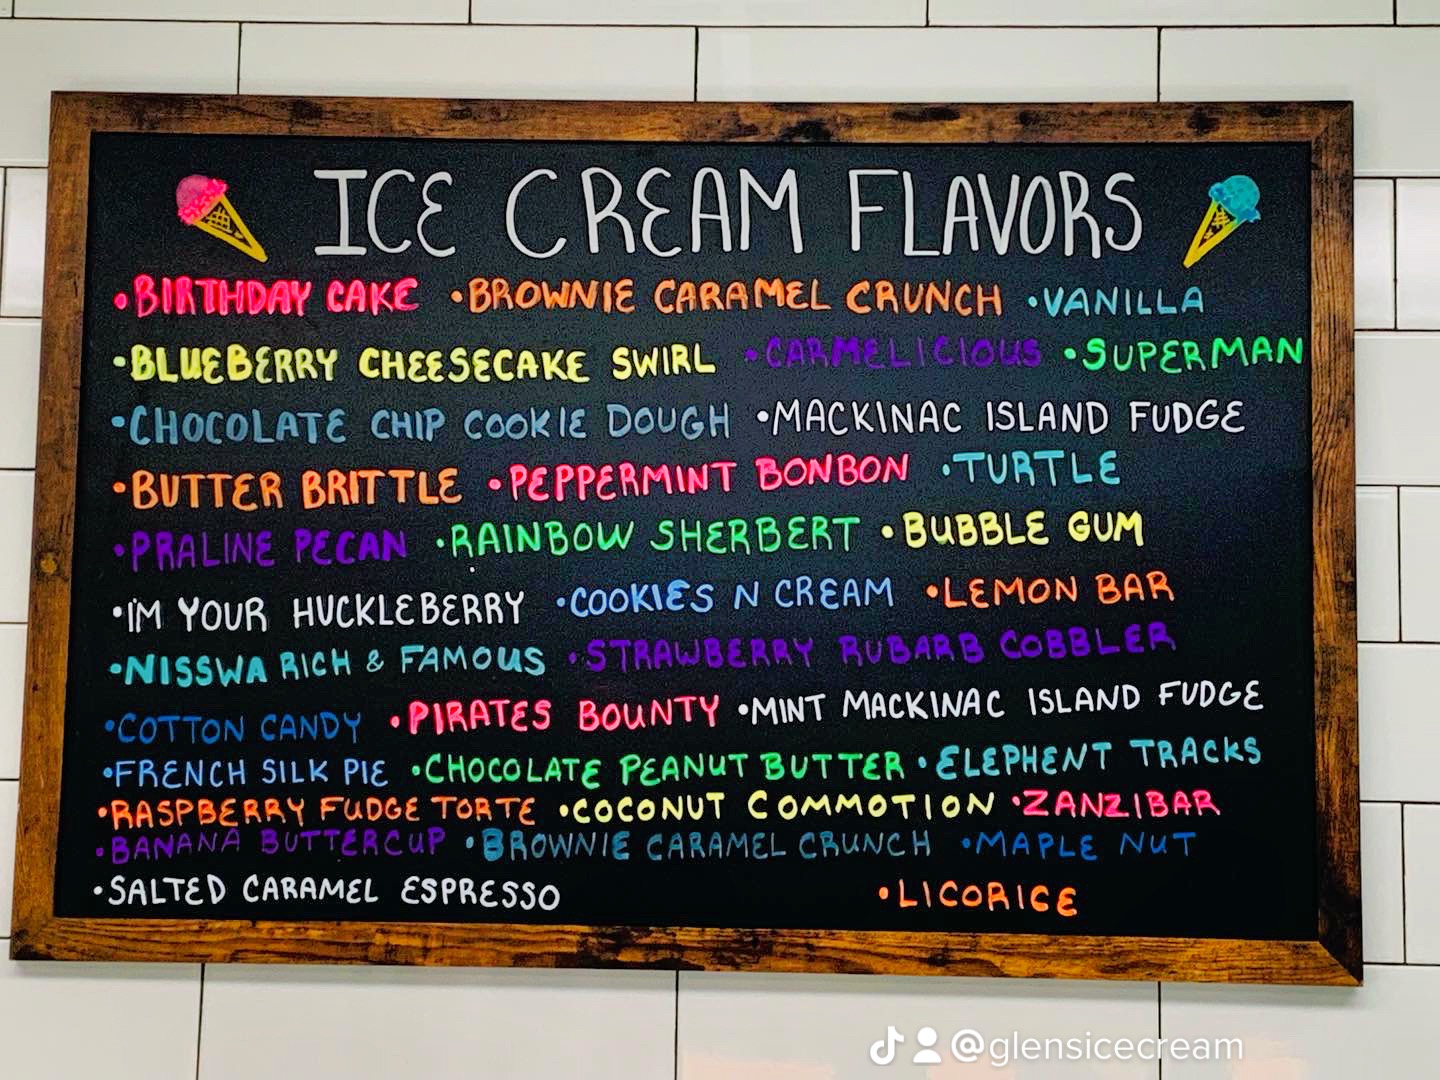 ICE CREAM FLAVORS
•BIRTHDAY CAKE •BROWNIE CARAMEL CRUNCH •VANILLA
•BLUEBERRY CHEESECAKE SWIRL •CARMELICIOUS •SUPERMAN
•CHOCOLATE CHIP COOKIE DOUGH •MACKINAC ISLAND FUDGE
•BUTTER BRITTLE •PEPPERMINT BONBON •TURTLE
•PRALINE PECAN •RAINBOW SHERBERT •BUBBLE GUM
•I'M YOUR HUCKLEBERRY •COOKIES N CREAM •LEMON BAR
•NISSWA RICH & FAMOUS •STRAWBERRY RUBARB COBBLER
•COTTON CANDY •PIRATES BOUNTY •MINT MACKINAC ISLAND FUDGE
•FRENCH SILK PIE •CHOCOLATE PEANUT BUTTER •ELEPHENT TRACKS
•RASPBERRY FUDGE TORTE •COCONUT COMMOTION •ZANZIBAR
•BANANA BUTTERCUP •BROWNIE CARAMEL CRUNCH •MAPLE NUT
•SALTED CARAMEL ESPRESSO •LICORICE
@glensicecream